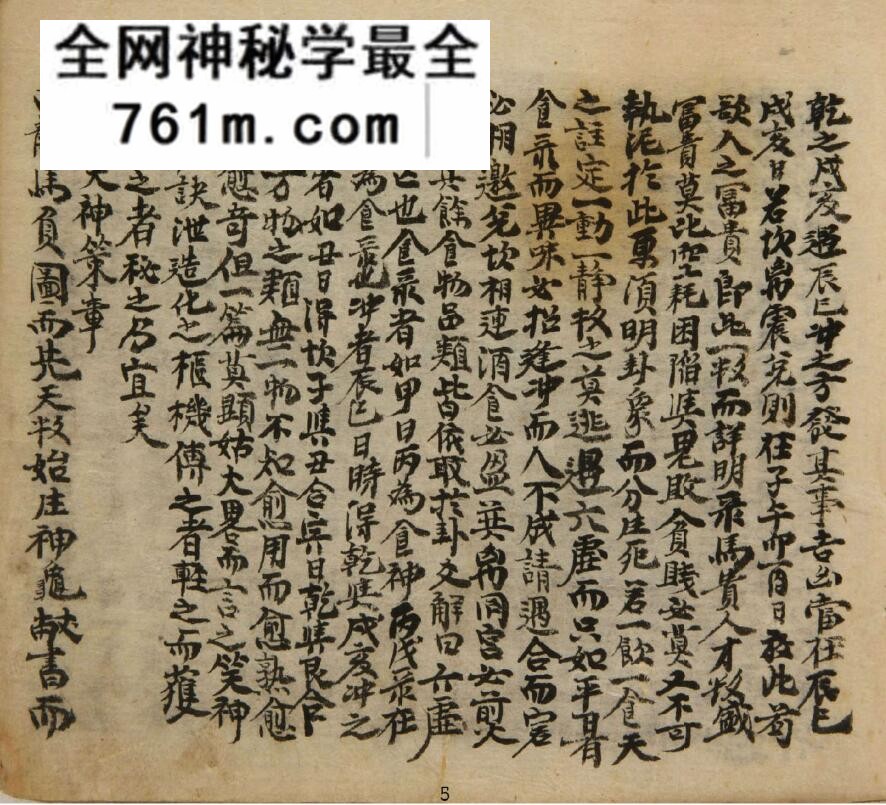 全网神秘学最全
761m.com
乾之戌亥遇辰巳冲之方發其事吉凶當在辰巳
戌亥日若坎离震兌則在子午卯酉日在此若
欲人之冨貴即此一数而詳明彔馬貴人才数
冨貴莫比空耗困陷與見敗貧賤必莫又不可
執泥於此更須明卦象而分生死若一飲一食天
之註定一動一静数之莫逃遇六虛而只如平日者
食彔而異味必招逢冲而人不成請遇合而
必相邀兌坎相連酒食必盈巽离同宫必煎
其餘食物品類皆依取於卦爻觧曰六虛
巳也食彔者如甲日丙為食神丙戊彔在
為食彔也冲者辰巳日時得乾與戌亥冲之
者如丑日得坎子與丑合寅日乾與艮合
万物之類無一物不知愈用而愈熟愈
愈竒但一篇莫顕姑大畧而言之笑神
訣泄造化之樞機傳之者軽之而
之者秘之乃宜矣
天神策章
龍馬負圖而先天数始生神龜献書而
5